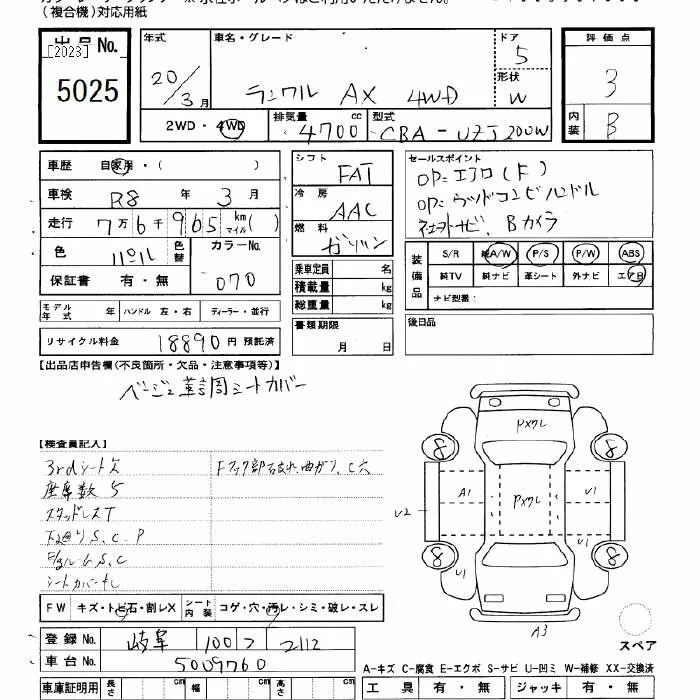 (複合機)対応用紙
出品No.
[2023]
5025
年式
20/3月
車名・グレード
ランクル AX 4WD
ドア
5
形状
W
評価点
3
内装
B
2WD・4WD
排気量
4700 cc
型式
CBA-UZJ200W
車歴 自家用・( )
車検 R8 年 3 月
走行 7万6千965 km マイル( )
色 パール
色替
カラーNo.
070
保証書 有・無
モデル年式 年 ハンドル 左・右 ディーラー・並行
リサイクル料金 18890 円 預託済
シフト
FAT
冷房
AAC
燃料
ガソリン
乗車定員 名
積載量 kg
総重量 kg
書類期限
月 日
セールスポイント
OP=エアロ(F)
OP=ウッドコンビハンドル
社外ナビ、Bカメラ
装備品
S/R 純A/W P/S P/W ABS
純TV 純ナビ 革シート 外ナビ エアB
ナビ型番:
後日品
【出品店申告欄(不良箇所・欠品・注意事項等)】
ベージュ革調シートカバー
【検査員記入】
3rdシート欠
座席数5
スタッドレスT
下回りS、C、P
S、C
シートカバー
Fフック部
FW キズ・トビ石・割レX
シート内装 コゲ・穴・汚レ・シミ・破レ・スレ
登録No. 岐阜 100 フ 2112
車台No. 5009760
車庫証明用 長さ cm 幅 cm 高さ cm
PXクレ
8
8
A1
PXクレ
U1
U2
8
8
U1
U1
A3
スペア
A-キズ C-腐食 E-エクボ S-サビ U-凹ミ W-補修 XX-交換済
工具 有・無 ジャッキ 有・無